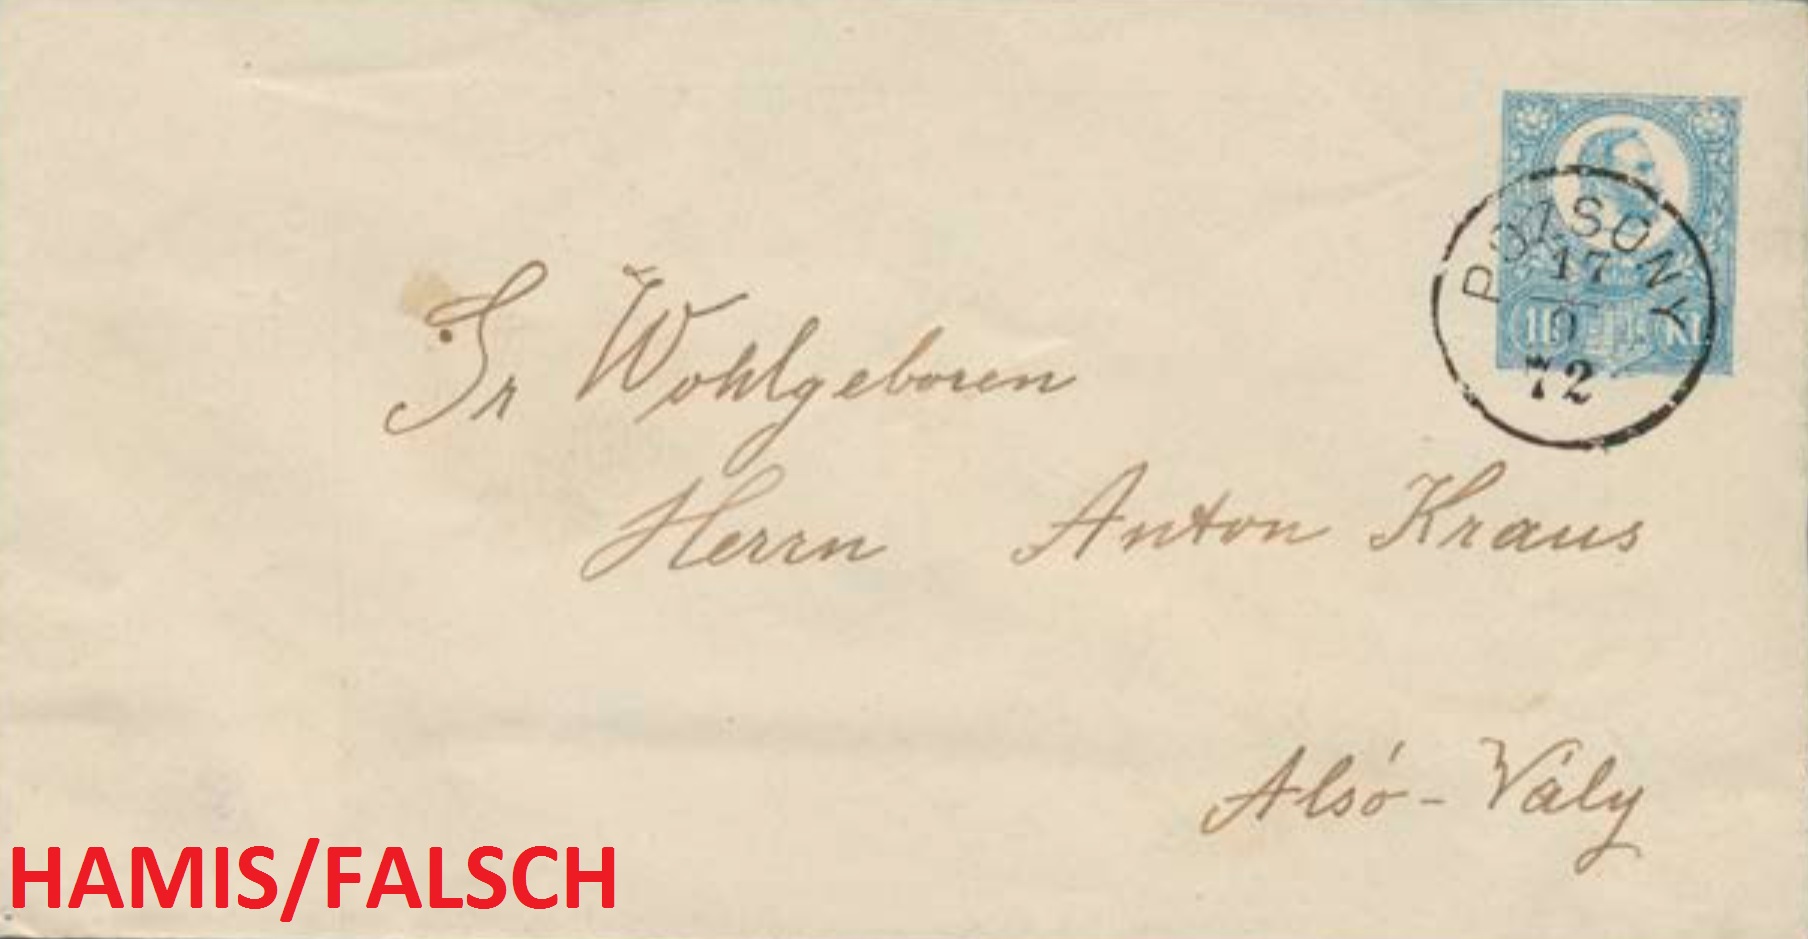 POZSONY
17
72
Sr Wohlgeboren
Herrn Anton Kraus
Alsó-Vály
HAMIS/FALSCH